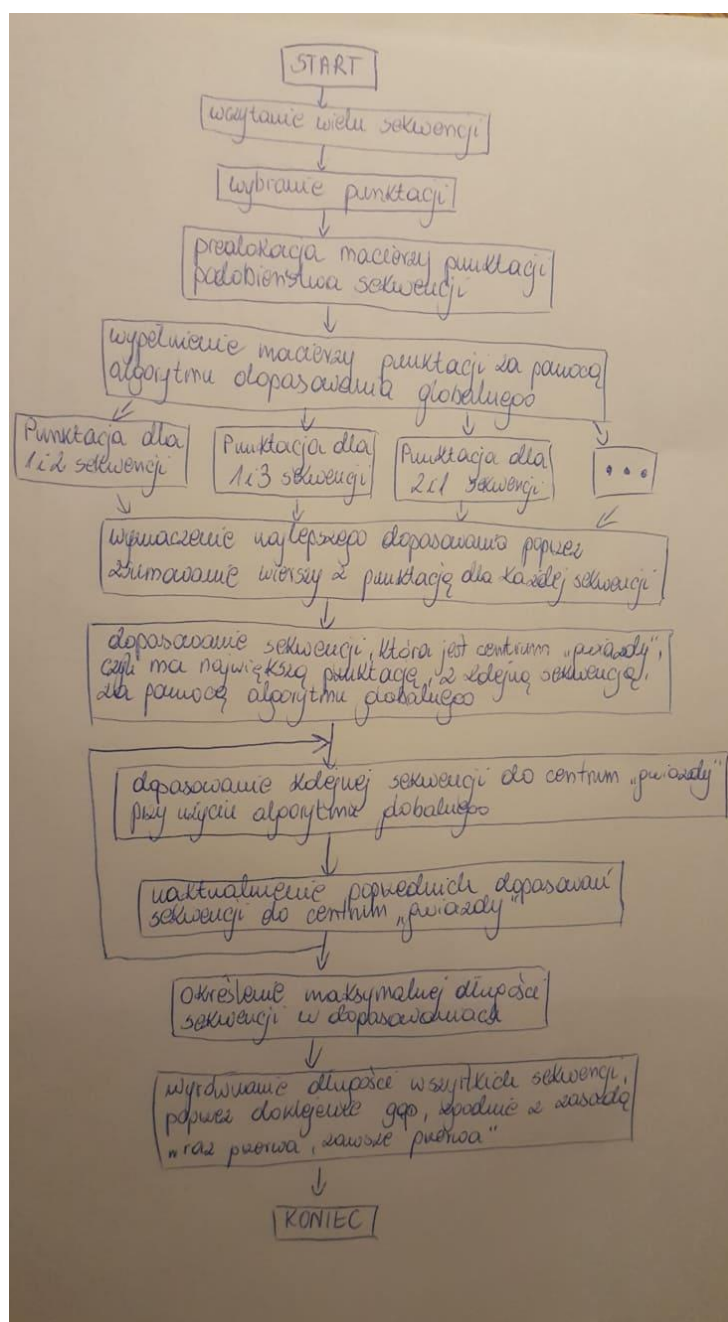 START
wczytanie wielu sekwencji
wybranie punktacji
prealokacja macierzy punktacji
podobieństwa sekwencji
wypełnienie macierzy punktacji za pomocą
algorytmu dopasowania globalnego
Punktacja dla
1 i 2 sekwencji
Punktacja dla
1 i 3 sekwencji
Punktacja dla
2 i 1 sekwencji
...
wyznaczenie najlepszego dopasowania poprzez
zsumowanie wierszy z punktacją dla każdej sekwencji
dopasowanie sekwencji, która jest centrum „gwiazdy”,
czyli ma największą punktację, z kolejną sekwencją,
za pomocą algorytmu globalnego
dopasowanie kolejnej sekwencji do centrum „gwiazdy”
przy użyciu algorytmu globalnego
uaktualnienie poprzednich dopasowań
sekwencji do centrum „gwiazdy”
określenie maksymalnej długości
sekwencji w dopasowaniach
wyrównanie długości wszystkich sekwencji,
poprzez doklejenie gap, zgodnie z zasadą
„raz przerwa, zawsze przerwa”
KONIEC